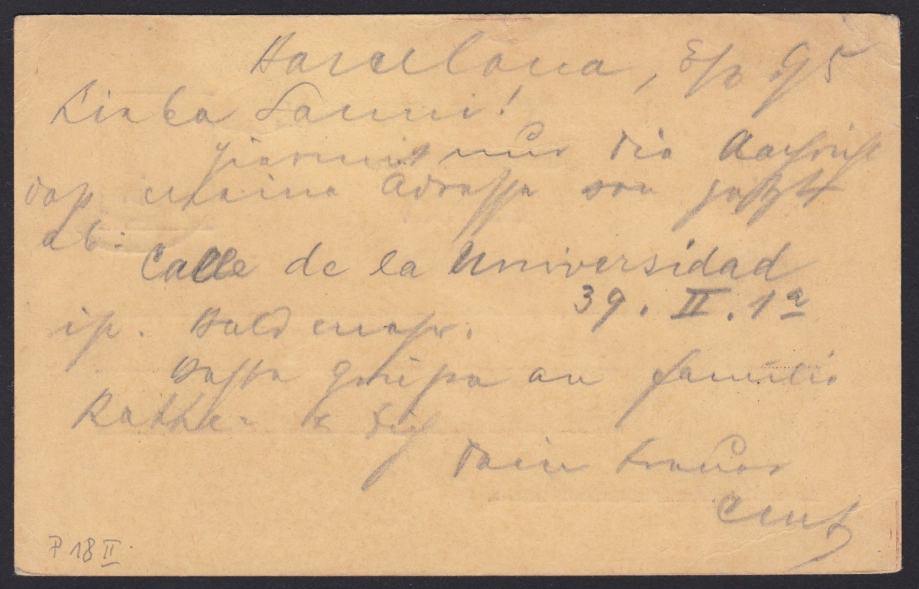 Barcelona, 5/2 95
Liebe Fanni!
Hiermit nur die Nachricht
daß meine Adresse von jetzt
ab:
Calle de la Universidad
39. II. 1ª
ist. Bald mehr.
Beste Grüße an Familie
Rathke & Dich
Dein treuer
P 18 II